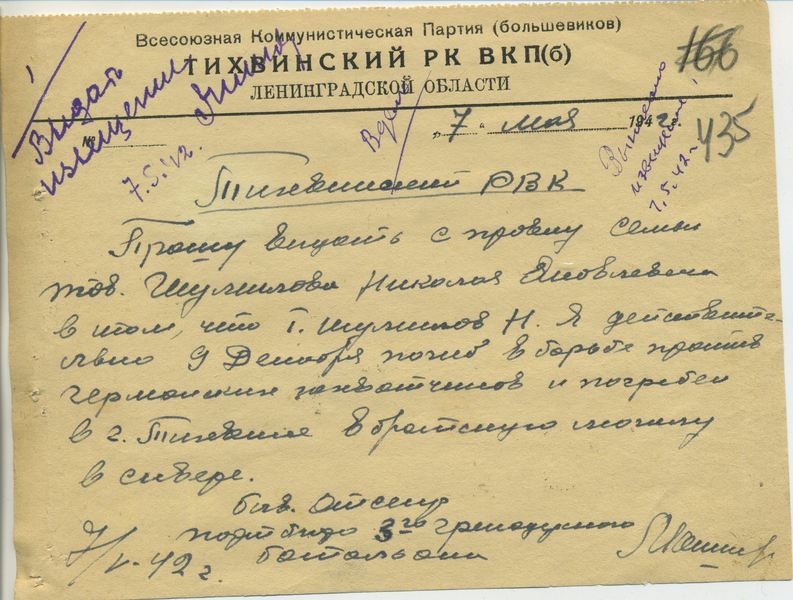 Всесоюзная Коммунистическая Партия (большевиков)
ТИХВИНСКИЙ РК ВКП(б)
ЛЕНИНГРАДСКОЙ ОБЛАСТИ
Выдать
извещение
7.5.42.
166
435
№
„7“ мая 1942 г.
Выписано
извещение
7.5.42 г.
Тихвинский РВК
Прошу выдать справку семьи
тов. Шумилова Николая Яковлевича
в том, что т. Шумилов Н. Я действите-
льно 9 Декабря погиб в борьбе против
германских захватчиков и погребен
в г. Тихвине в братскую могилу
в сквере.
быв. Отсекр
партбюро 3го гренадерского
батальона
7/V-42 г.